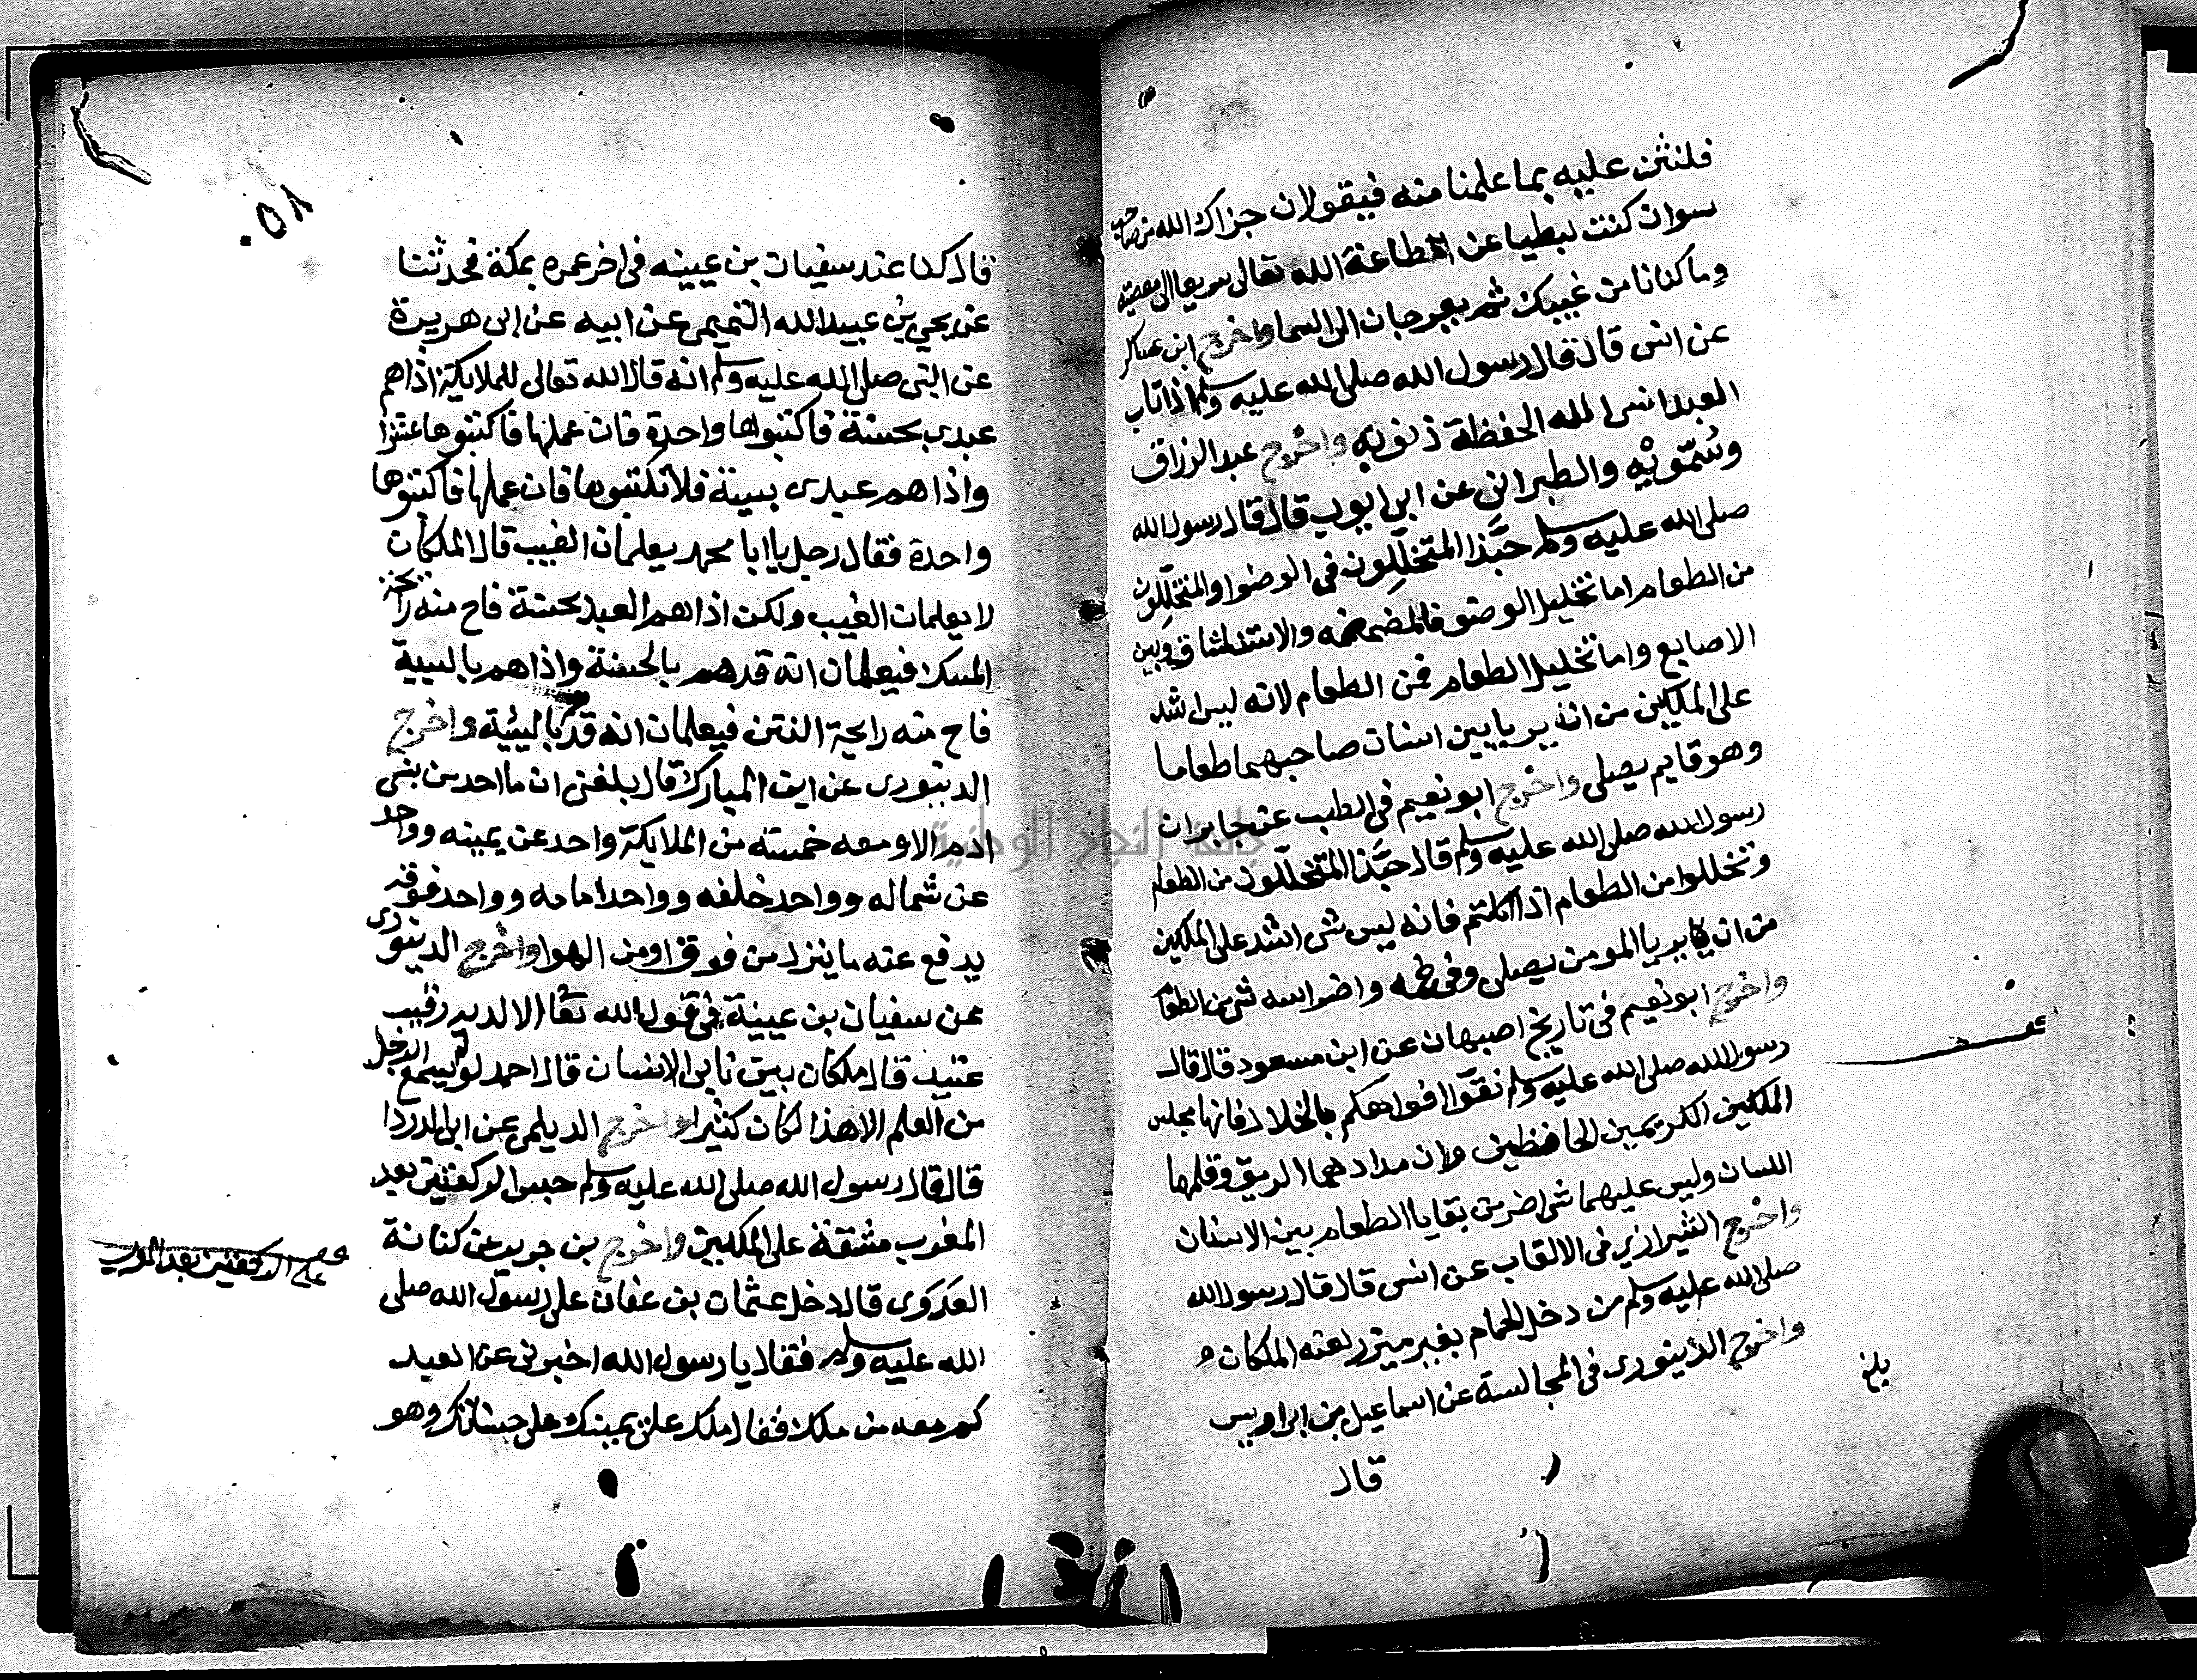 فلنثن عليه بما علمنا منه فيقولان جزاك الله من صاحب
سوا ان كنت لبطيا عن طاعة الله تعالى سريعا الى معصيته
وما كنا نامن غيبك ثم يعرجان الى السما واخرج ابن عساكر
عن انس قال قال رسول الله صلى الله عليه وسلم اذا تاب
العبد انسى الله الحفظة ذنوبه واخرج عبد الرزاق
وسمويه والطبرانى عن ابى ايوب قال قال رسول الله
صلى الله عليه وسلم حبذا المتخللون فى الوضوا والمتخللون
من الطعام اما تخليل الوضو فالمضمضه والاستنشاق وبين
الاصابع واما تخليل الطعام فمن الطعام لانه ليس اشد
على الملكين من ان يريا بين اسنان صاحبهما طعاما
وهو قايم يصلى واخرج ابو نعيم فى الطب عن جابر ان
رسول الله صلى الله عليه وسلم قال حبذا المتخللون من الطعام
وتخللوا من الطعام اذا اكلتم فانه ليس شى اشد على الملكين
من ان يريا المومن يصلى وفى فمه واضراسه شى من الطعام
واخرج ابو نعيم فى تاريخ اصبهان عن ابن مسعود قال قال
رسول الله صلى الله عليه وسلم نقوا افواهكم بالخلال فانها مجلس
الملكين الكريمين الحافظين وان مدادهما الريق وقلمها
اللسان وليس عليهما شى اضر من بقايا الطعام بين الاسنان
واخرج الشيرازى فى الالقاب عن انس قال قال رسول الله
صلى الله عليه وسلم من دخل الحمام بغير ميزر لعنه الملكان
واخرج الدينورى فى المجالسة عن اسماعيل بن ابى اويس
بلغ
قال
٥٨
قال كنا عند سفيان بن عيينه فى اخر عمره بمكة فحدثنا
عن يحيى بن عبيد الله التميمى عن ابيه عن ابى هريرة
عن النبى صلى الله عليه وسلم انه قال الله تعالى للملايكة اذا هم
عبدى بحسنة فاكتبواها واحدة فان عملها فاكتبوها عشرا
واذا هم عبدى بسيئة فلا تكتبوها فان عملها فاكتبوها
واحدة فقال رجل يا ابا محمد يعلمان الغيب قال الملكان
لا يعلمان الغيب ولكن اذا هم العبد بحسنة فاح منه رائحة
المسك فيعلمان انه قد هم بالحسنة واذا هم بالسيية
فاح منه رايحة النتن فيعلمان انه قد هم بالسيئة واخرج
الدينورى عن ابن المبارك قال بلغنى ان ما احد من بنى
ادم الا ومعه خمسة من الملايكة واحد عن يمينه وواحد
عن شماله وواحد خلفه وواحد امامه وواحد فوقه
يدفع عنه ما ينزل من فوق او من الهوا واخرج الدينورى
عن سفيان بن عيينة فى قول الله تعالى الا لديه رقيب
عتيد قال ملكان بين نابى الانسان قال احمد لو لم يسمع الرجل
من العلم الا هذا لكان كثيرا واخرج الديلمى عن ابى الدردا
قال قال رسول الله صلى الله عليه وسلم حبس الركعتين بعد
المغرب مشقة على الملكين واخرج بن جرير عن كنانة
العدوى قال دخل عثمان بن عفان على رسول الله صلى
الله عليه وسلم فقال يا رسول الله اخبرنى عن العبد
كم معه من ملك فقال ملك على يمينك على حسناتك وهو
على الركعتين بعد المغرب
جامعة النجاح الوطنية